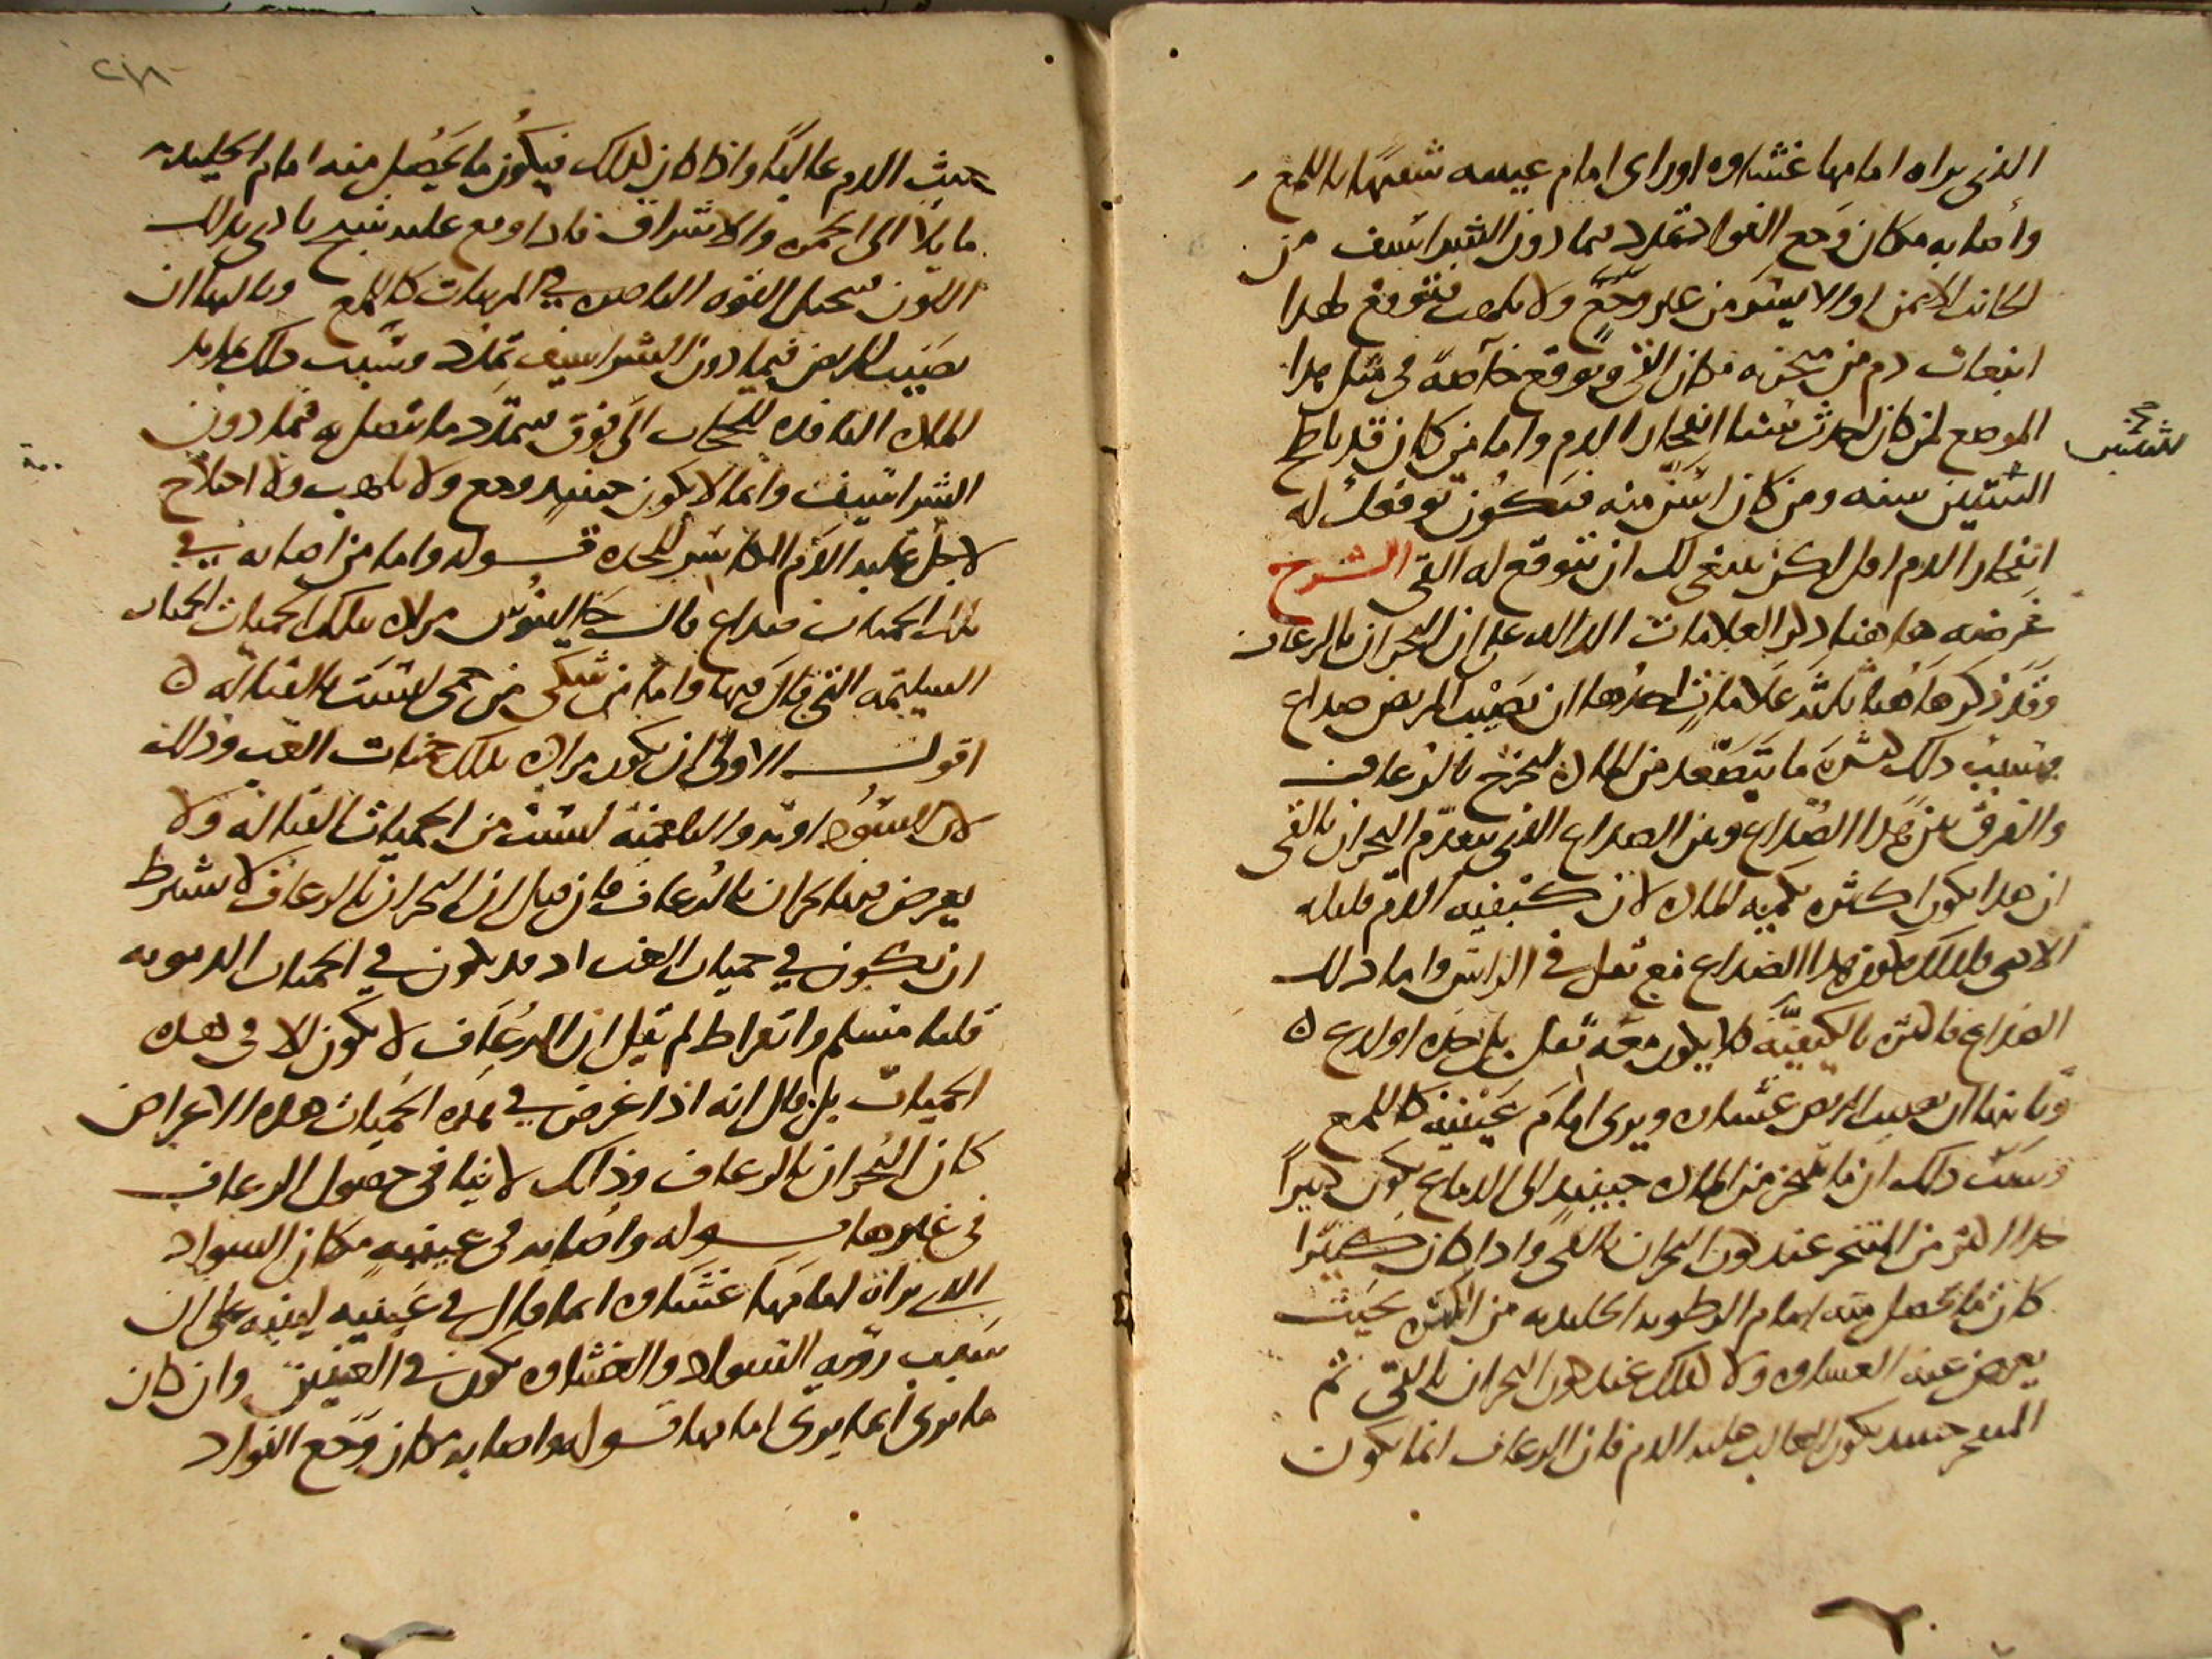 الذي يراه امامها غشاوه او راى امام عينيه شبيهًا باللمع
واصابه مكان وجع الفواد تمدد فيما دون الشراسيف من
الجانب الايمن او الايسر من غير وجع ولا تلهب فتوقع لهذا
انبعاث دم من منخريه مكان القي وتوقع خاصة في مثل هذا
الموضع لمن كان احدث سنا انفجار الدم واما من كان قد ناطح
الستين سنه ومن كان اسن منه فيكون توقعك له
انفجار الدم اقل لكن ينبغي لك ان تتوقع له القي الشرح
غرضه هاهنا ذكر العلامات الداله على ان البحران بالرعاف
وقد ذكر هاهنا ثلثه علامات احدها ان يصيب المريض صداع
وسبب ذلك كثرة ما يتصعد من الماده لتخرج بالرعاف
والفرق بين هذا الصداع وبين الصداع الذي يتقدم البحران بالقي
ان هذا يكون اكثره بكميه الماده لان كيفيه الدم قليله
الاذى فلذلك يكون هذا الصداع مع ثقل في الراس واما ذلك
الصداع فاكثره بالكيفيه فلا يكون معه ثقل بل حده او لدع
وثانيها ان يصيب المريض غشاوه ويرى امام عينيه كاللمع
وسبب ذلك ان ما يتبخر من الماده حينيذ الى الدماغ يكون كثيرًا
جدا اكثر من المتبخر عند كون البحران بالقي واذا كان كثيرا
كان ما يحصل منه امام الرطوبه الجليديه من الكثره بحيث
يعرض عنه الغشاوه ولا كذلك عند كون البحران بالقي ثم
المتبخر حينيذ يكون الغالب عليه الدم فان الرعاف انما يكون
للستين
حيث الدم غالبًا واذا كان كذلك فيكون ما يحصل منه امام الجليديه
مايلا الى الحمره والاشراق فاذا وقع عليه شبح تادى بذلك
اللون فتتخيل القوه الباصره في المرييات كاللمع وثالثها ان
يصيب المريض فيما دون الشراسيف تمدد وسبب ذلك تمديد
الماده النافذه للحجاب الى فوق فيتمدد ما يتصل به فيما دون
الشراسيف وانما لا يكون حينيذ وجع ولا تلهب ولا اختلاج
لاجل غلبه الدم الكاسر للحده قوله واما من اصابه في
تلك الحميات صداع قال جالينوس مراده بتلك الحميات الحميات
السليمه التي قال فيها واما من شكى من حمى ليست بالقتاله
اقول الاولى ان يكون مراده بتلك حميات الغب وذلك
لان السوداويه والبلغميه ليست من الحميات القتاله ولا
يعرض فيها بحران بالرعاف فان قيل ان البحران بالرعاف لا يشترط
ان يكون في حميات الغب اذ قد يكون في الحميات الدمويه
قلنا مسلم وابقراط لم يقل ان الرعاف لا يكون الا في هذه
الحميات بل قال انه اذا عرض في هذه الحميات هذه الاعراض
كان البحران بالرعاف وذلك لا ينافي حصول الرعاف
في غيرها قوله واصابه في عينيه مكان السواد
الذي يراه امامها غشاوه انما قال في عينيه لينبه على ان
سبب رويه السواد والغشاوه يكون في العينين وان كان
ما يرى انما يرى امامها قوله واصابه مكان وجع الفواد